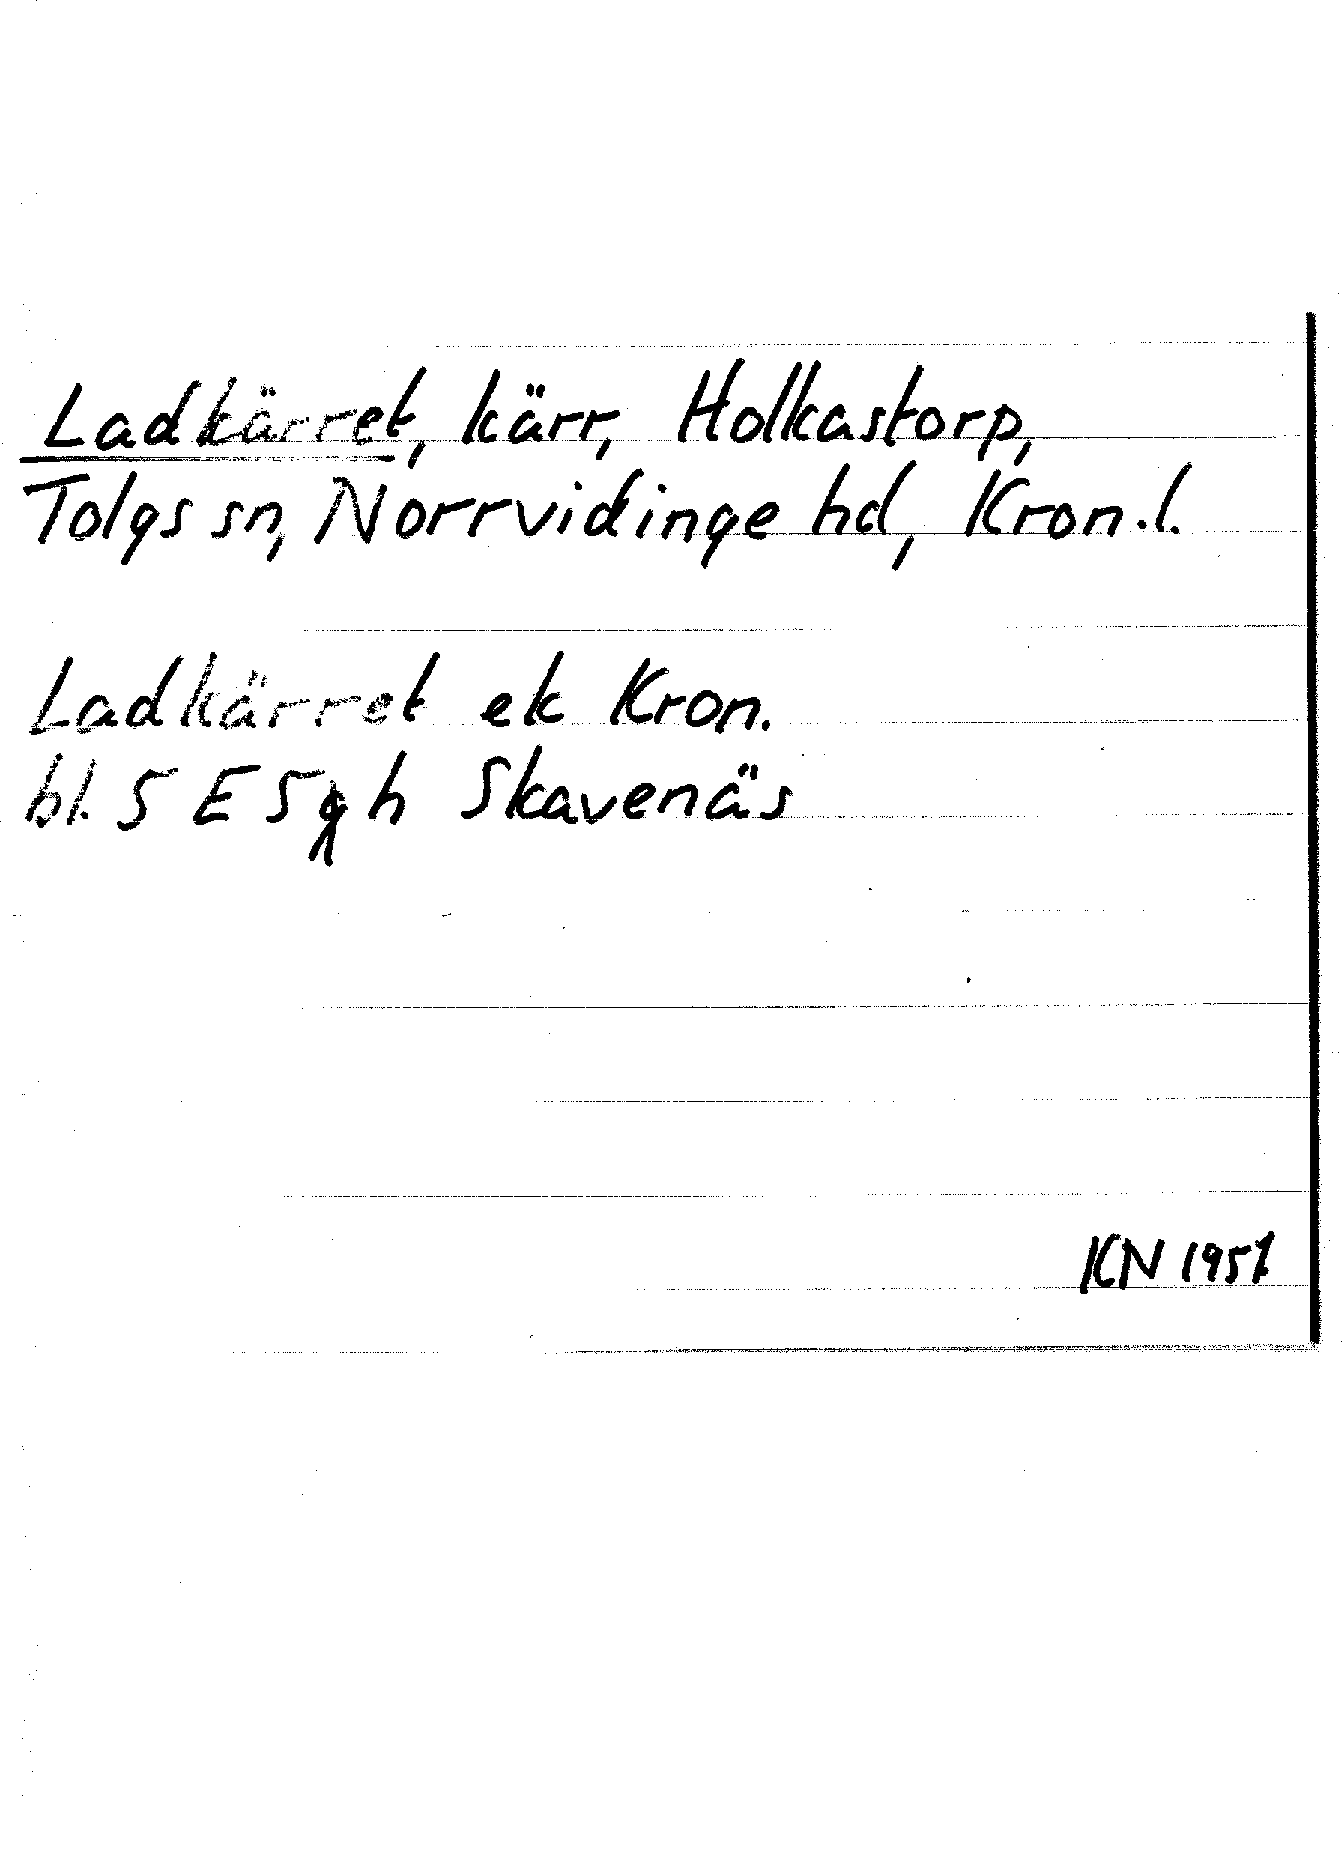 Ladkärret, kärr, Holkastorp,
Tolgs sn, Norrvidinge hd, Kron.l.
Ladkärret ek Kron.
bl. 5 E 5 g h Skavenäs
KN 1957